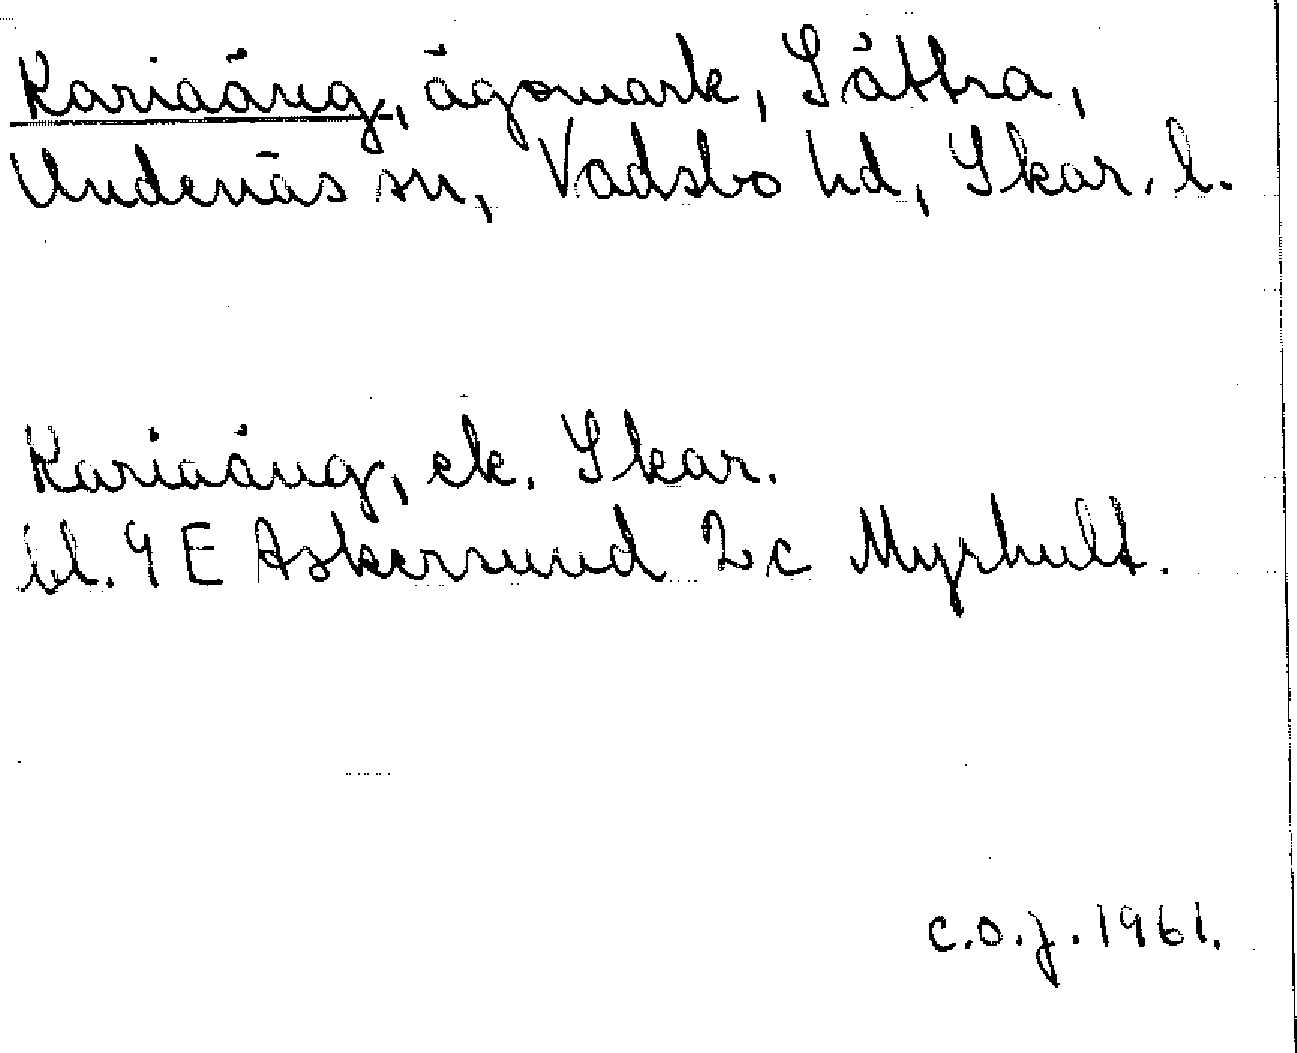 Kariaäng, ägomark, Såttra,
Undenäs sn, Vadsbo hd, Skar. l.
Kariaäng, ek. Skar.
bl. 9 E Askersund 2 c Myrhult.
C.O.J. 1961.